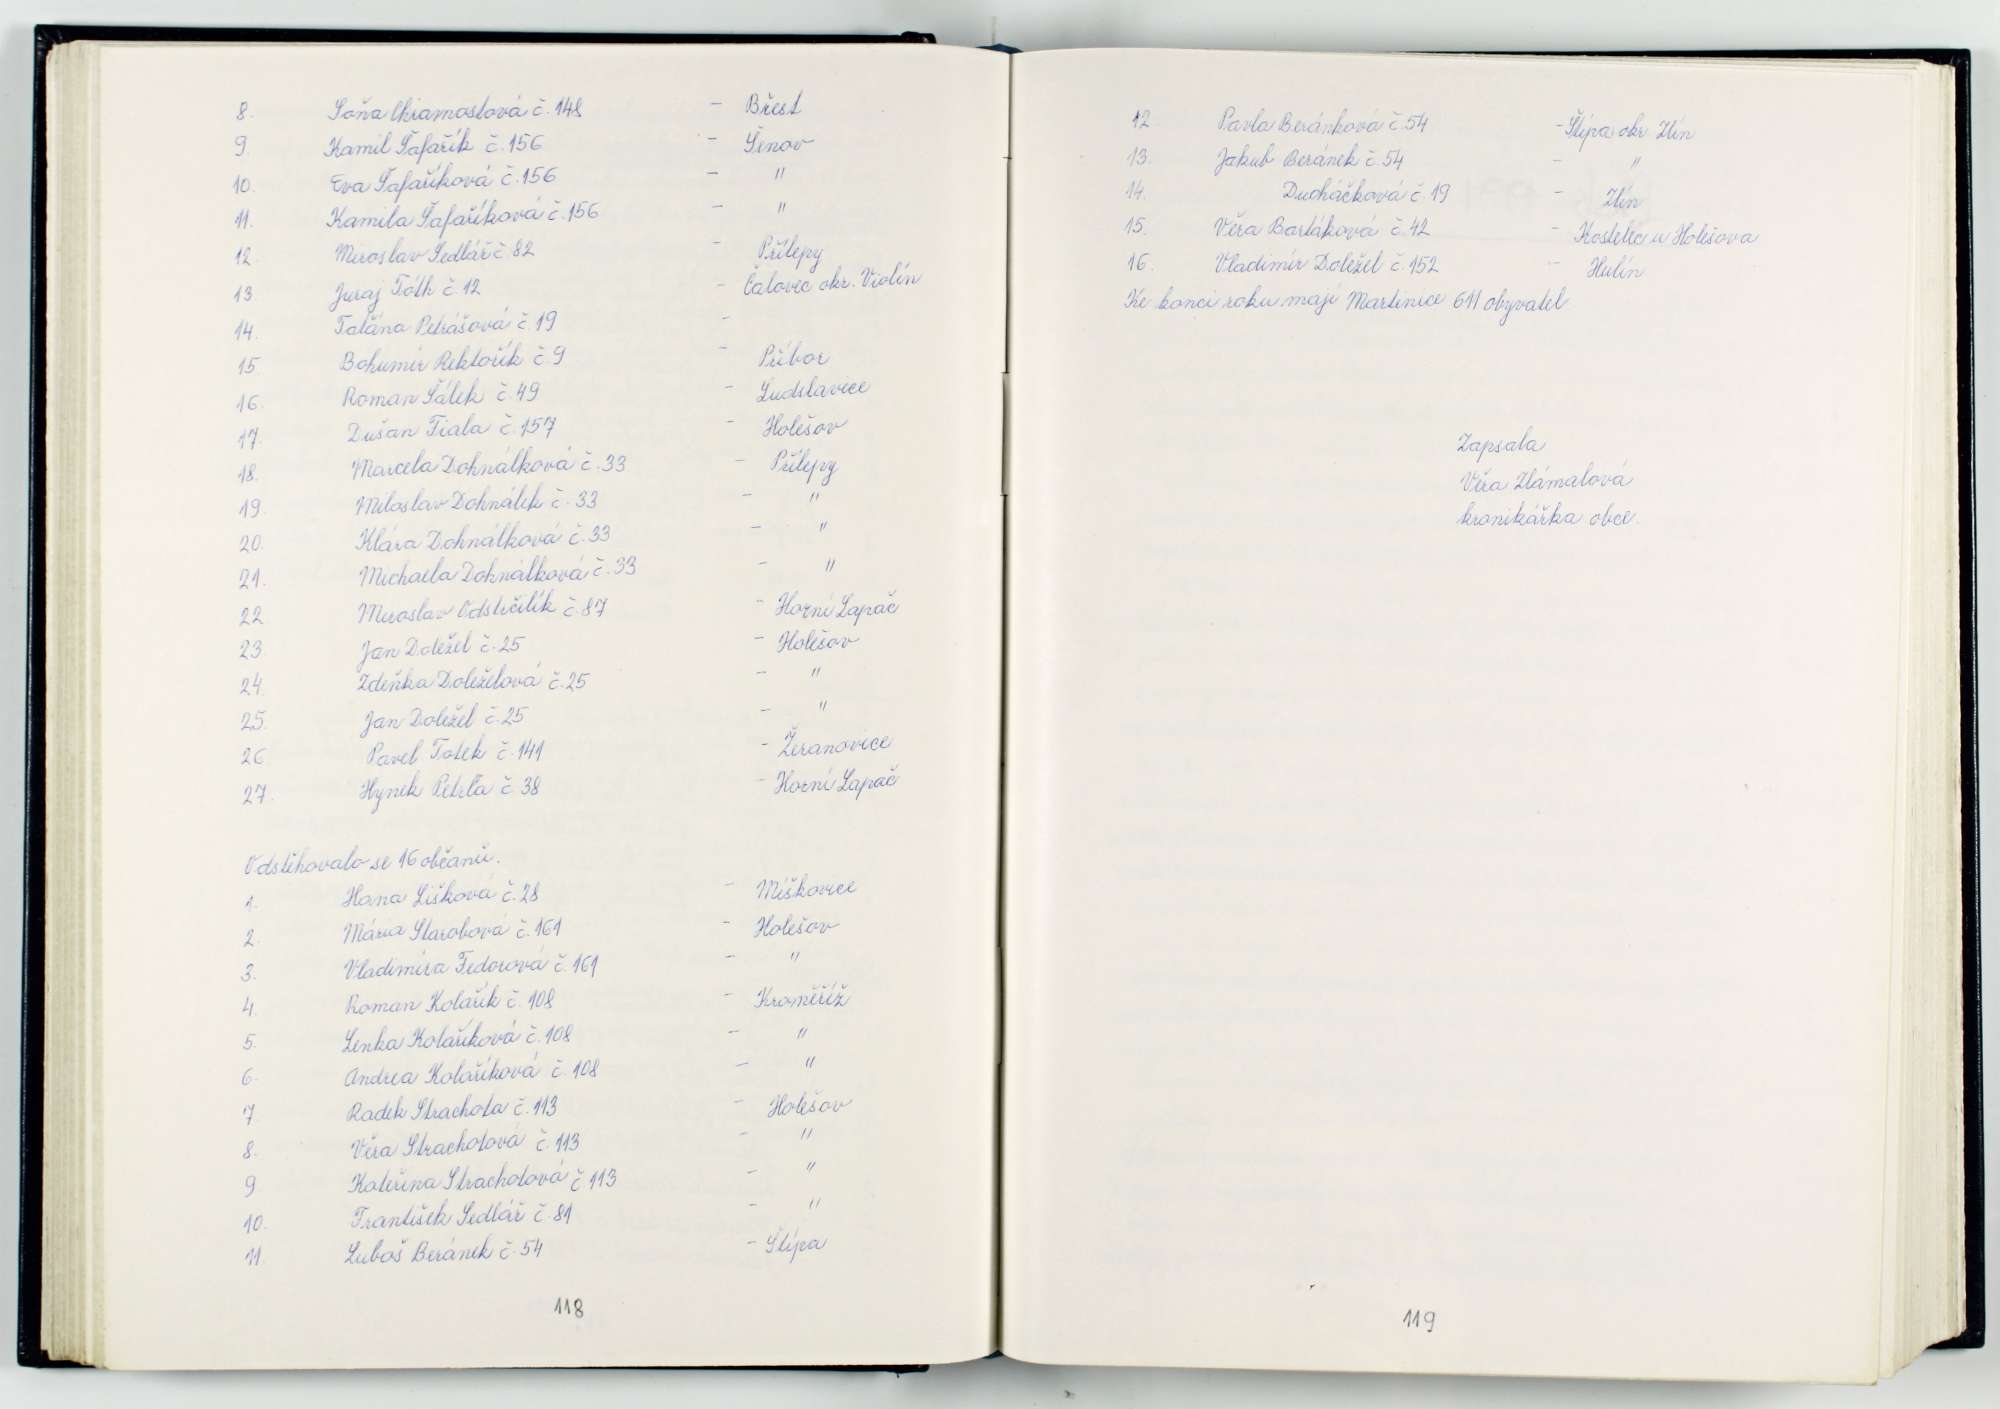 8. Soňa Chramostová č. 148 - Břest
9. Kamil Šafařík č. 156 - Šenov
10. Eva Šafaříková č. 156 - "
11. Kamila Šafaříková č. 156 - "
12. Miroslav Sedlář č. 82 - Přílepy
13. Juraj Tóth č. 12 - Čalovec okr. Violín
14. Taťána Petrášová č. 19 -
15 Bohumír Rektořík č. 9 - Příbor
16. Roman Šálek č. 49 - Ludslavice
17. Dušan Fiala č. 157 - Holešov
18. Marcela Dohnálková č. 33 - Přílepy
19. Miloslav Dohnálek č. 33 - "
20. Klára Dohnálková č. 33 - "
21. Michaela Dohnálková č. 33 - "
22 Miroslav Odstrčilík č. 87 - Horní Lapač
23. Jan Doležel č. 25 - Holešov
24. Zdeňka Doleželová č. 25 - "
25. Jan Doležel č. 25 - "
26 Pavel Totek č. 141 - Žeranovice
27. Hynek Petrľa č 38 - Horní Lapač
Odstěhovalo se 16 občanů.
1. Hana Lišková č. 28 - Míškovice
2. Mária Starobová č. 161 - Holešov
3. Vladimíra Fedorová č. 161 - "
4. Roman Kolařík č. 108 - Kroměříž
5. Lenka Kolaříková č. 108 - "
6. Andrea Kolaříková č. 108 - "
7. Radek Strachota č. 113 - Holešov
8. Věra Strachotová č. 113 - "
9 Kateřina Strachotová č 113 - "
10. František Sedlář č. 81 - "
11. Luboš Beránek č. 54 - Štípa
118
12. Pavla Beránková č. 54 - Štípa okr. Zlín
13. Jakub Beránek č. 54 - "
14. Ducháčková č. 19 - Zlín
15. Věra Bartáková č. 42 - Kostelec u Holešova
16. Vladimír Doležel č. 152 - Hulín
Ke konci roku mají Martinice 611 obyvatel.
Zapsala
Věra Zlámalová
kronikářka obce.
119